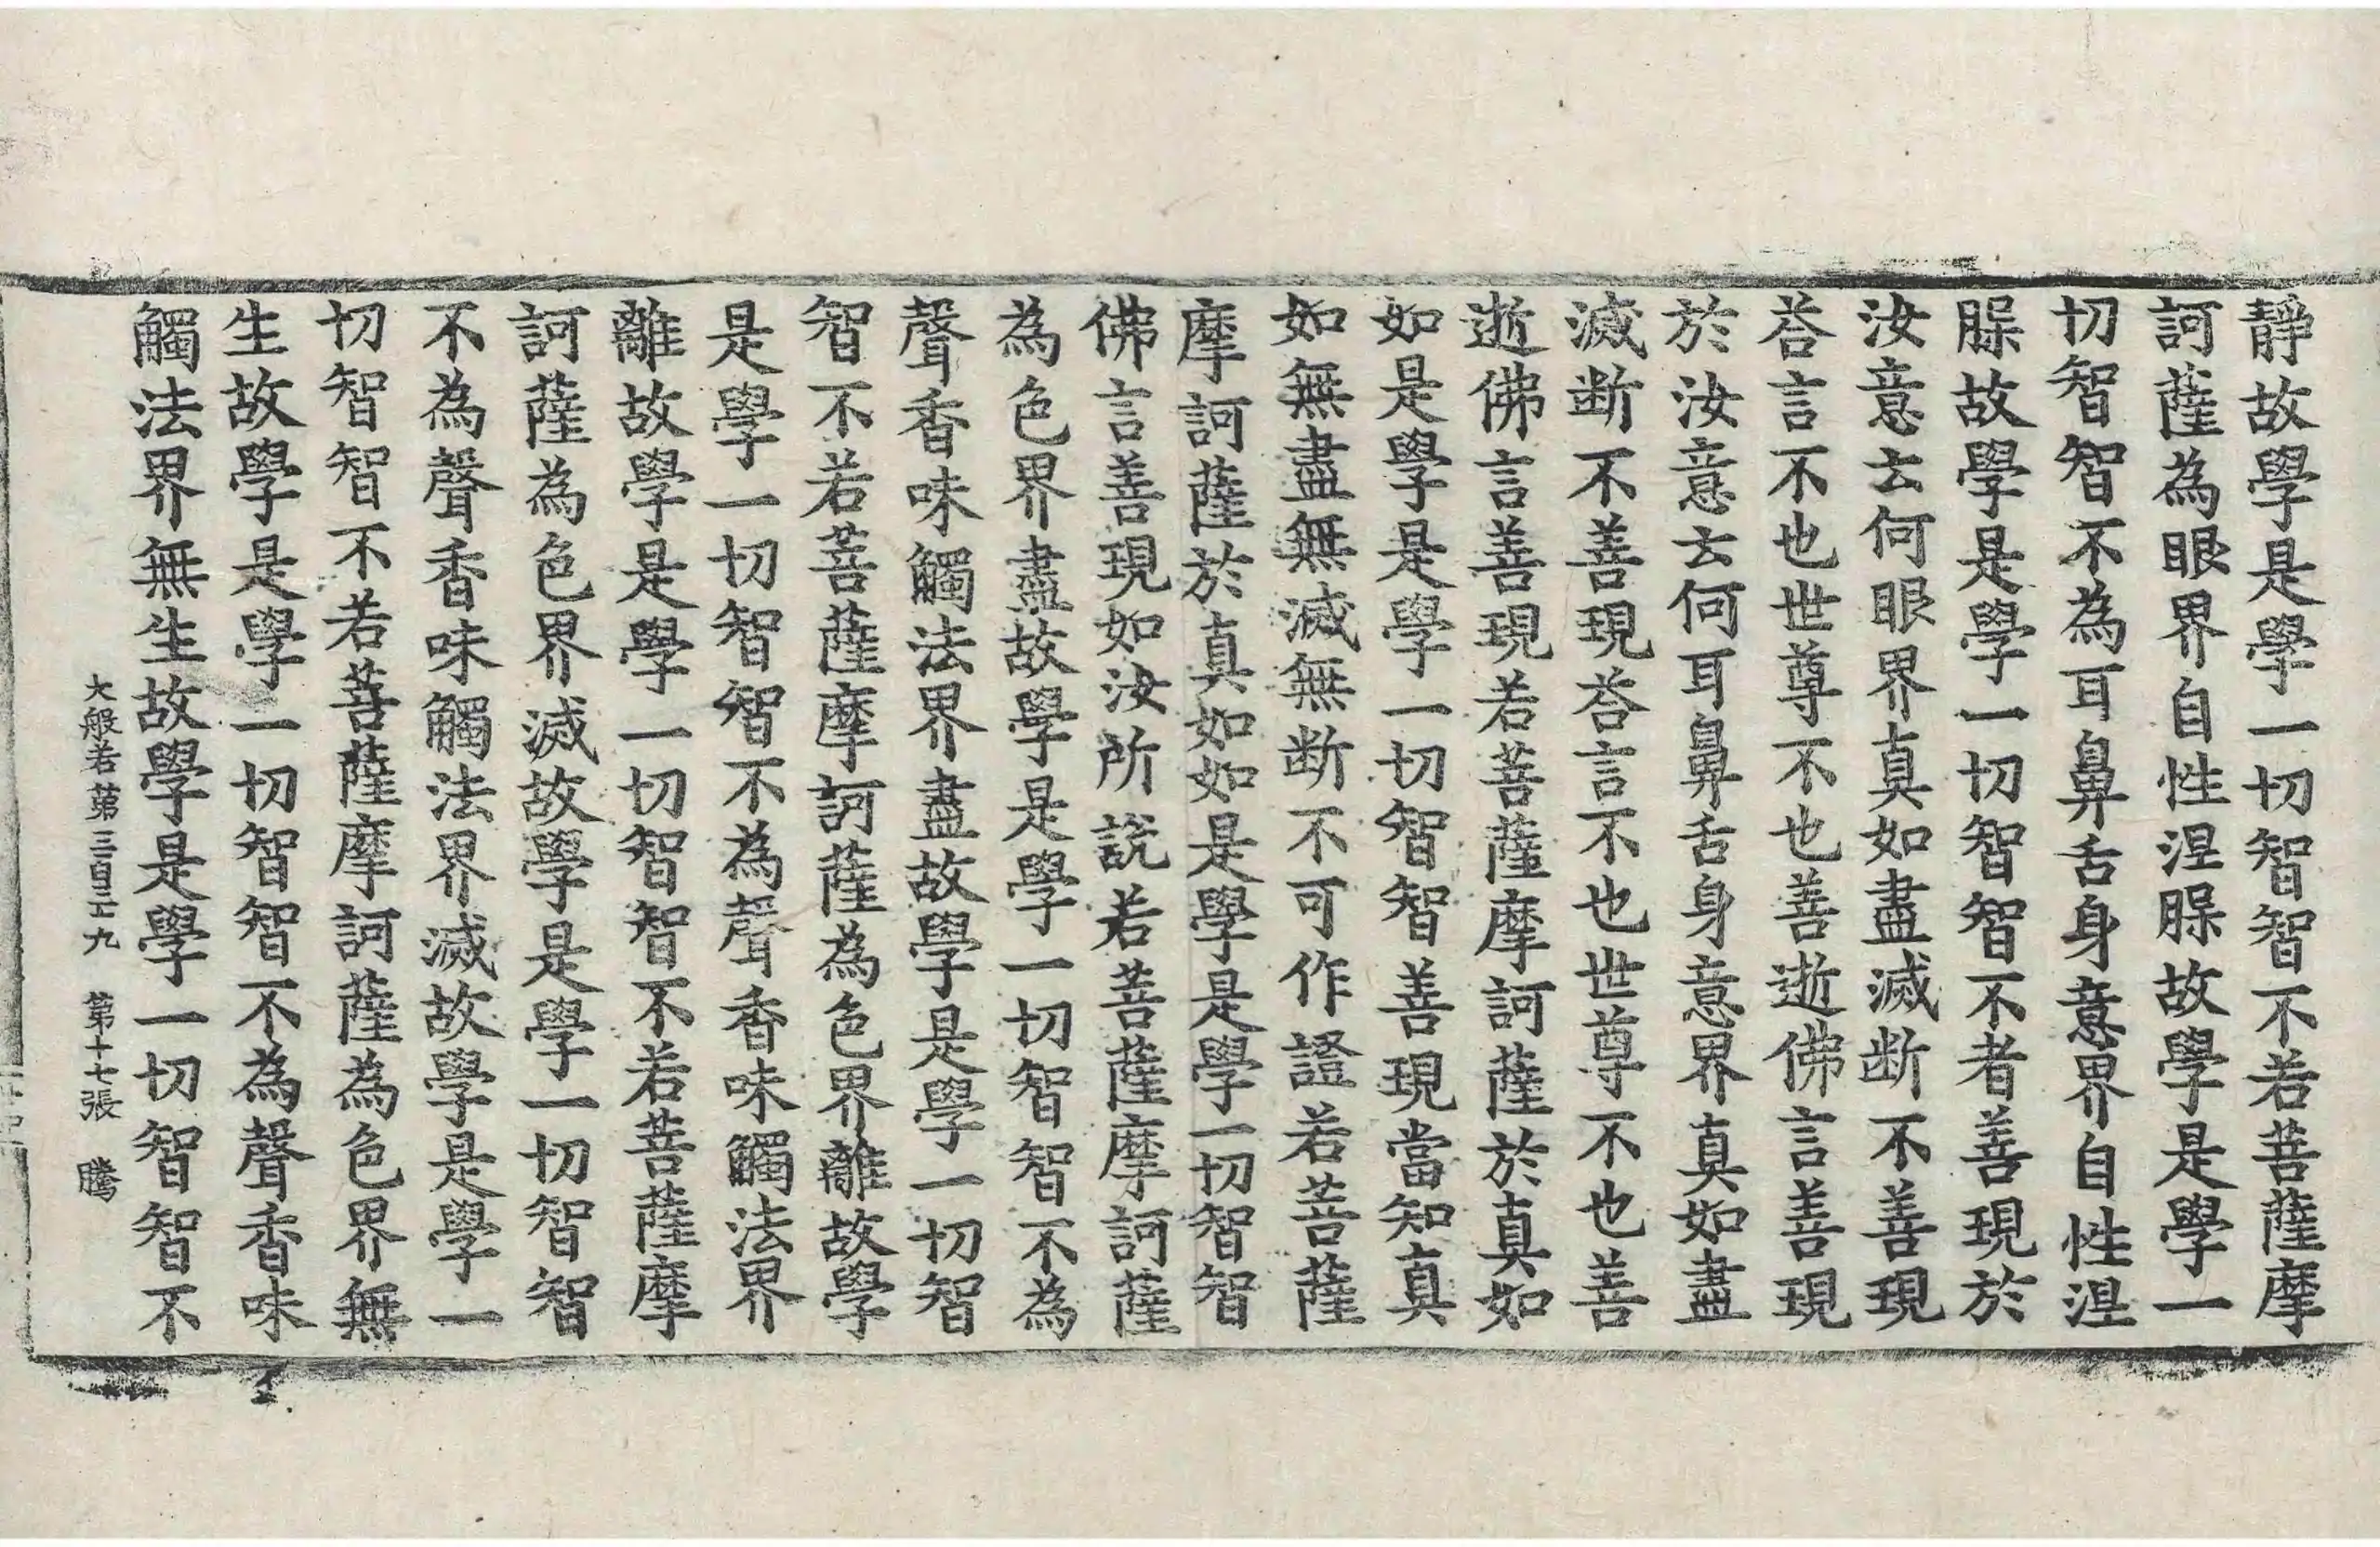 靜故學是學一切智智不若菩薩摩
訶薩為眼界自性涅脲故學是學一
切智智不為耳鼻舌身意界自性涅
脲故學是學一切智智不者善現於
汝意云何眼界真如盡滅断不善現
荅言不也世尊不也善逝佛言善現
於汝意云何耳鼻舌身意界真如盡
滅断不善現荅言不也世尊不也善
逝佛言善現若菩薩摩訶薩於真如
如是學是學一切智智善現當知真
如無盡無滅無断不可作證若菩薩
摩訶薩於真如如是學是學一切智智
佛言善現如汝所說若菩薩摩訶薩
為色界盡故學是學一切智智不為
聲香味觸法界盡故學是學一切智
智不若菩薩摩訶薩為色界離故學
是學一切智智不為聲香味觸法界
離故學是學一切智智不若菩薩摩
訶薩為色界滅故學是學一切智智
不為聲香味觸法界滅故學是學一
切智智不若菩薩摩訶薩為色界無
生故學是學一切智智不為聲香味
觸法界無生故學是學一切智智不
大般若第三百三十九 第十七張 騰